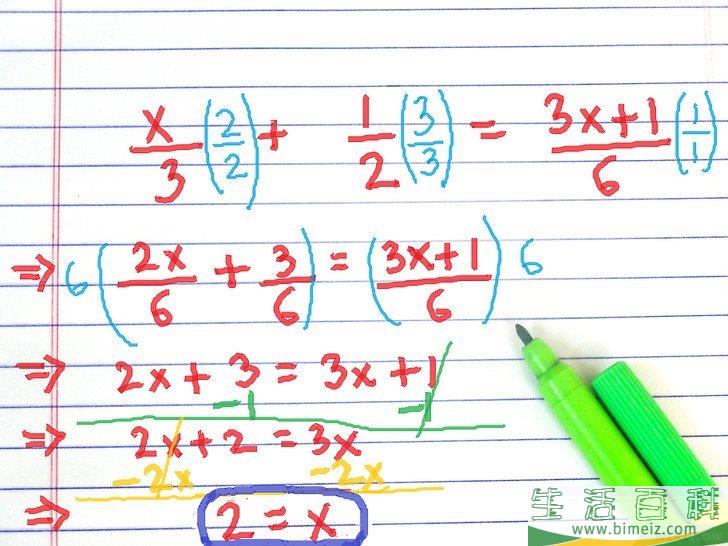 x/3 (2/2) + 1/2 (3/3) = 3x+1/6 (1/1)
⇒ 6 (2x/6 + 3/6) = (3x+1/6) 6
⇒ 2x + 3 = 3x + 1
-1 -1
⇒ 2x + 2 = 3x
-2x -2x
⇒ 2 = x
生活百科
www.bimeiz.com